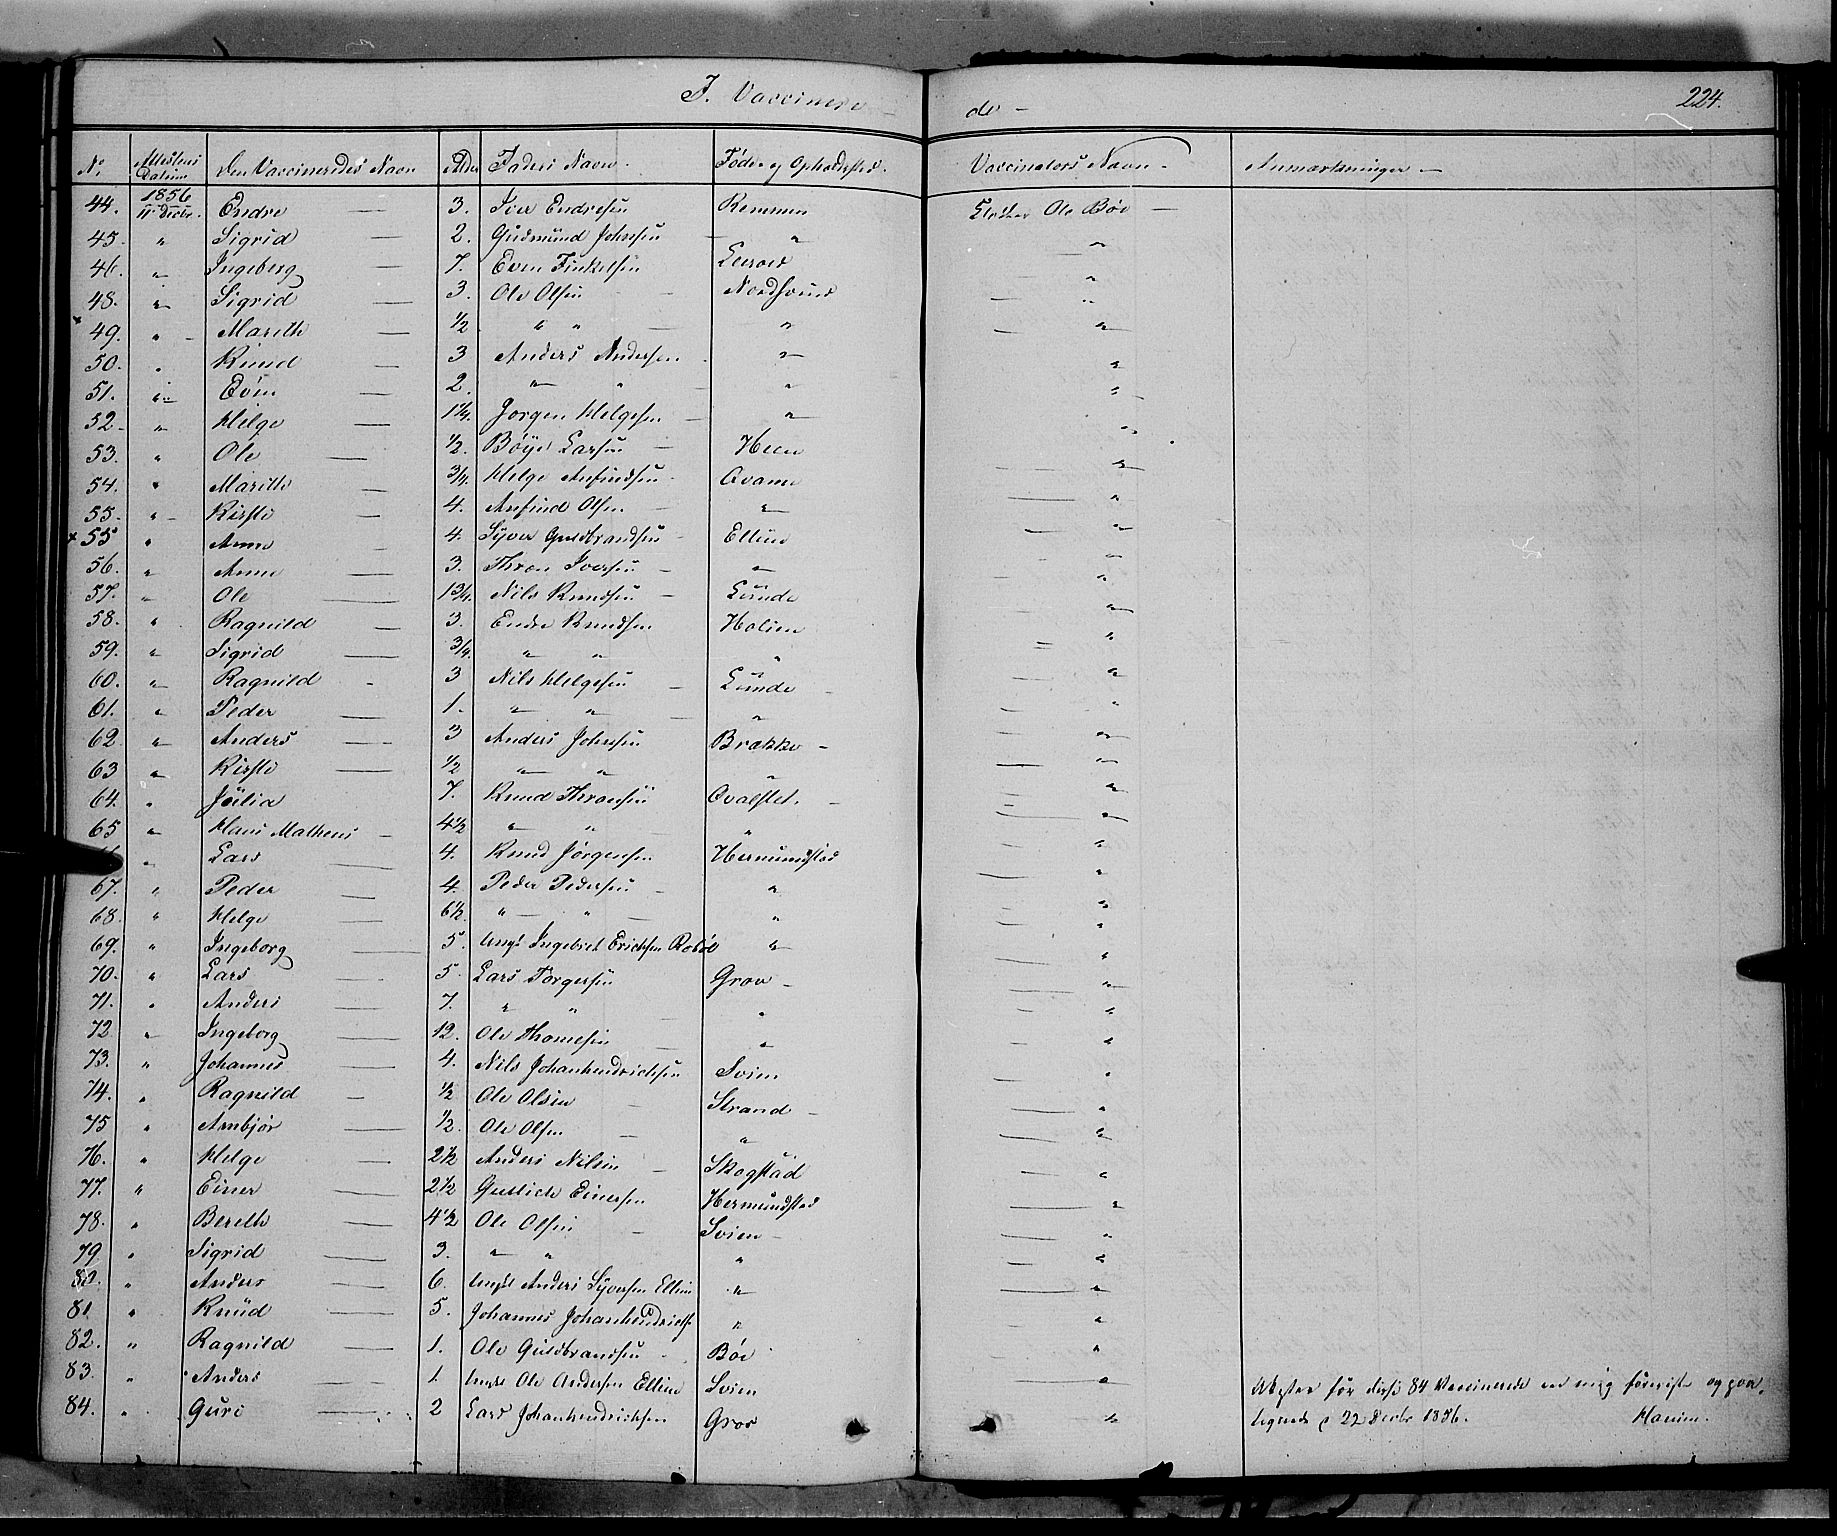 J. Vaccinere de 224.
No Attestens Datum Den Vaccineredes Navn Alder Faders Navn Føde- og Opholdssted. Vaccinators Navn Anmærkninger
44. 1856 11 Decbr. Endre 3. Iver Endresen Remmen Klokker Ole Bøe
45. " Sigrid 2. Gudmund Johnsen " "
46. " Ingeberg 7. Even Finkelsen "
48. " Sigrid 3. Ole Olsen "
49. " Marith 1/2 " " " "
50. " Knud 3 Anders Andersen " "
51. " Even 2. " " " "
52. " Helge 1 1/4. Jørgen Helgesen " "
53. " Ole 1/2. Bøye Larsen Heen "
54. " Marith 3/4. Helge Anfindsen Qvamn "
55. " Kirsti 4. Anfind Olsen " "
x 55 " Anne 4. Syver Guldbrandsen Elline "
56. " Anne 3. Thron Iversen " "
57. " Ole 1 3/4. Nils Knudsen Lunde "
58. " Ragnild 3. Endre Knudsen Holien "
59. " Sigrid 3/4. " " " "
60. " Ragnild 3 Nils Helgesen Lunde "
61. " Peder 1. " " " "
62. " Anders 3 Anders Johnsen Brække "
63 " Kirsti 1/2 " " " "
64. " Julia 7. Knud Thronsen Qvalstet. "
65 " Hans Matheus 4 1/2 " " " "
" Lars 4. Knud Jørgensen Hermundstad "
67. " Peder 4. Peder Pedersen " "
68. " Helge 6 1/2. " " " "
69. " Ingeborg 5. Ungk Ingebret Erichsen Robøl " "
70. " Lars 5. Lars Torgersen Grov "
71. " Anders 7. " " " "
72 " Ingeborg 12. Ole Thomesen " "
73. " Johannes 4. Nils Johanhendrichsen Svien "
74. " Ragnild 1/2 Ole Olsen Strand "
75 " Arnbjør 1/2. Ole Olsen " "
76. " Helge 2 1/2 Anders Nilsen Skogstad "
77. " Einer 2 1/2 Gutlich Einersen Hermundstad "
78. " Bereth 4 1/2 Ole Olsen Svien "
79 " Sigrid 3. " " " "
80. " Anders 6. Ungk Anders Syversen Ellien " "
81 " Knud 5. Johannes Johanhendrichs " "
82. " Ragnild 1. Ole Guldbrandsen Bøe "
83. " Anders 1 Ungk Ole Andersen Elline Svien "
84. " Guri 2 Lars Johanhendrichsen Grov "
Attester for disse 84 Vaccinerede ere mig foreviste og paa-
tegnede d 22 Decbr 1856.